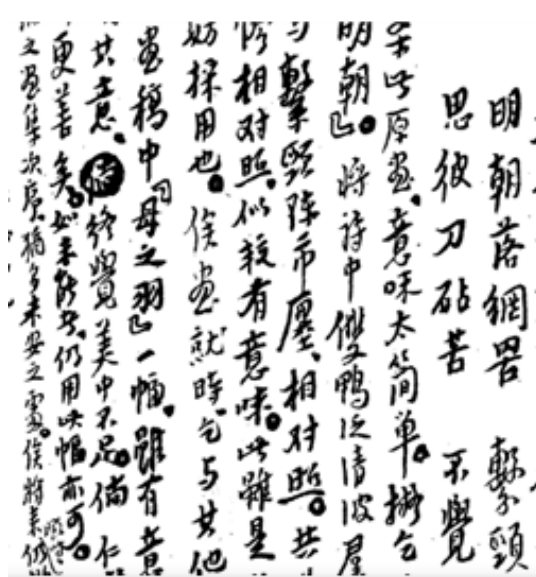 明朝落網罟 繫頸
思彼刀砧苦 不覺
案此原畫，意味太簡單。擬乞
明朝』。將詩中雙鴨泛清波
与繫頸陳市廛、相對照。共
相對照，似較有意味。此雖是
妨採用也。俟畫就時，乞与其他
畫稿中『母之羽』一幅。雖有意
其意。終覺美中不足。倘仁
更善矣。如未能者，仍用此幅亦可。
之畫集次序猶多未安之處。俟將來